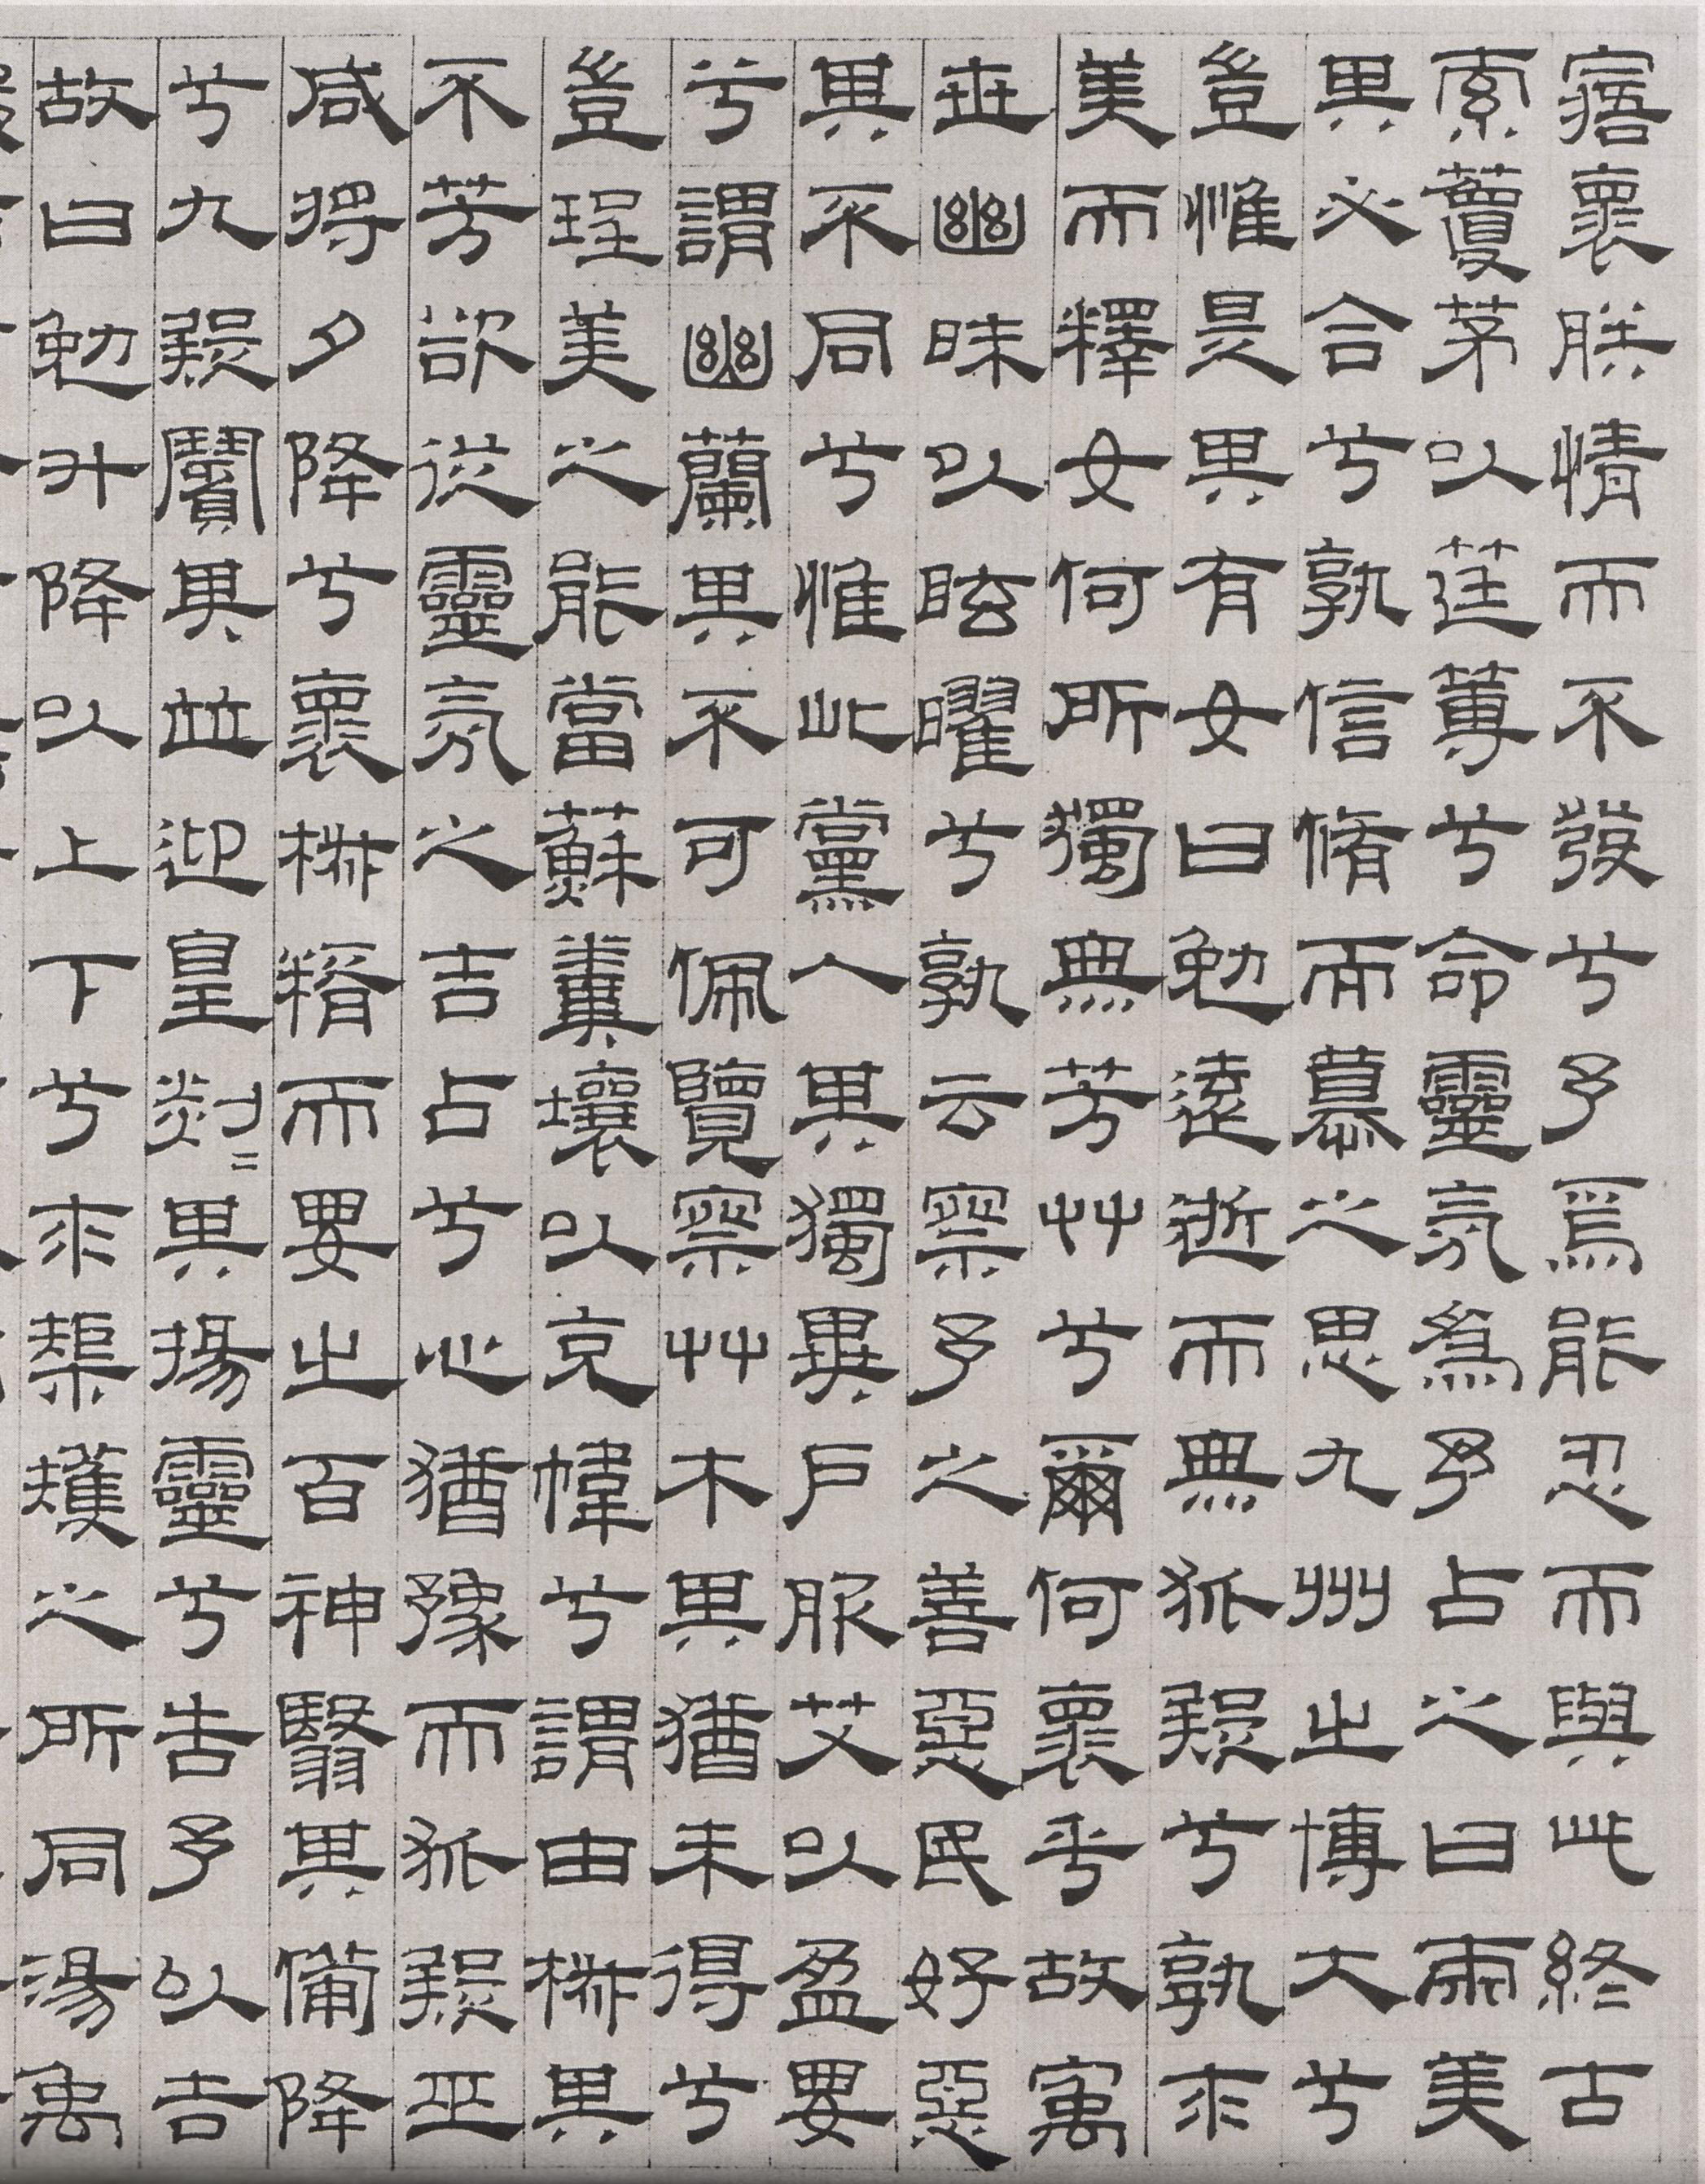 寤褱朕情而不發兮予焉能忍而與此終古
索藑茅以莛蓴兮命靈氛爲予占之曰兩美
其必合兮孰信脩而慕之思九州之博大兮
豈惟是其有女曰勉遠逝而無狐疑兮孰求
美而釋女何所獨無芳艸兮爾何褱乎故寓
世幽昧以眩曜兮孰云察予之善惡民好惡
其不同兮惟此黨人其獨異戶服艾以盈要
兮謂幽蘭其不可佩覽察艸木其猶未得兮
豈珵美之能當蘇糞壤以充幃兮謂申椒其
不芳欲從靈氛之吉占兮心猶豫而狐疑巫
咸將夕降兮褱椒糈而要之百神翳其備降
兮九疑繽其並迎皇剡=其揚靈兮告予以吉
故曰勉升降以上下兮求榘矱之所同湯禹